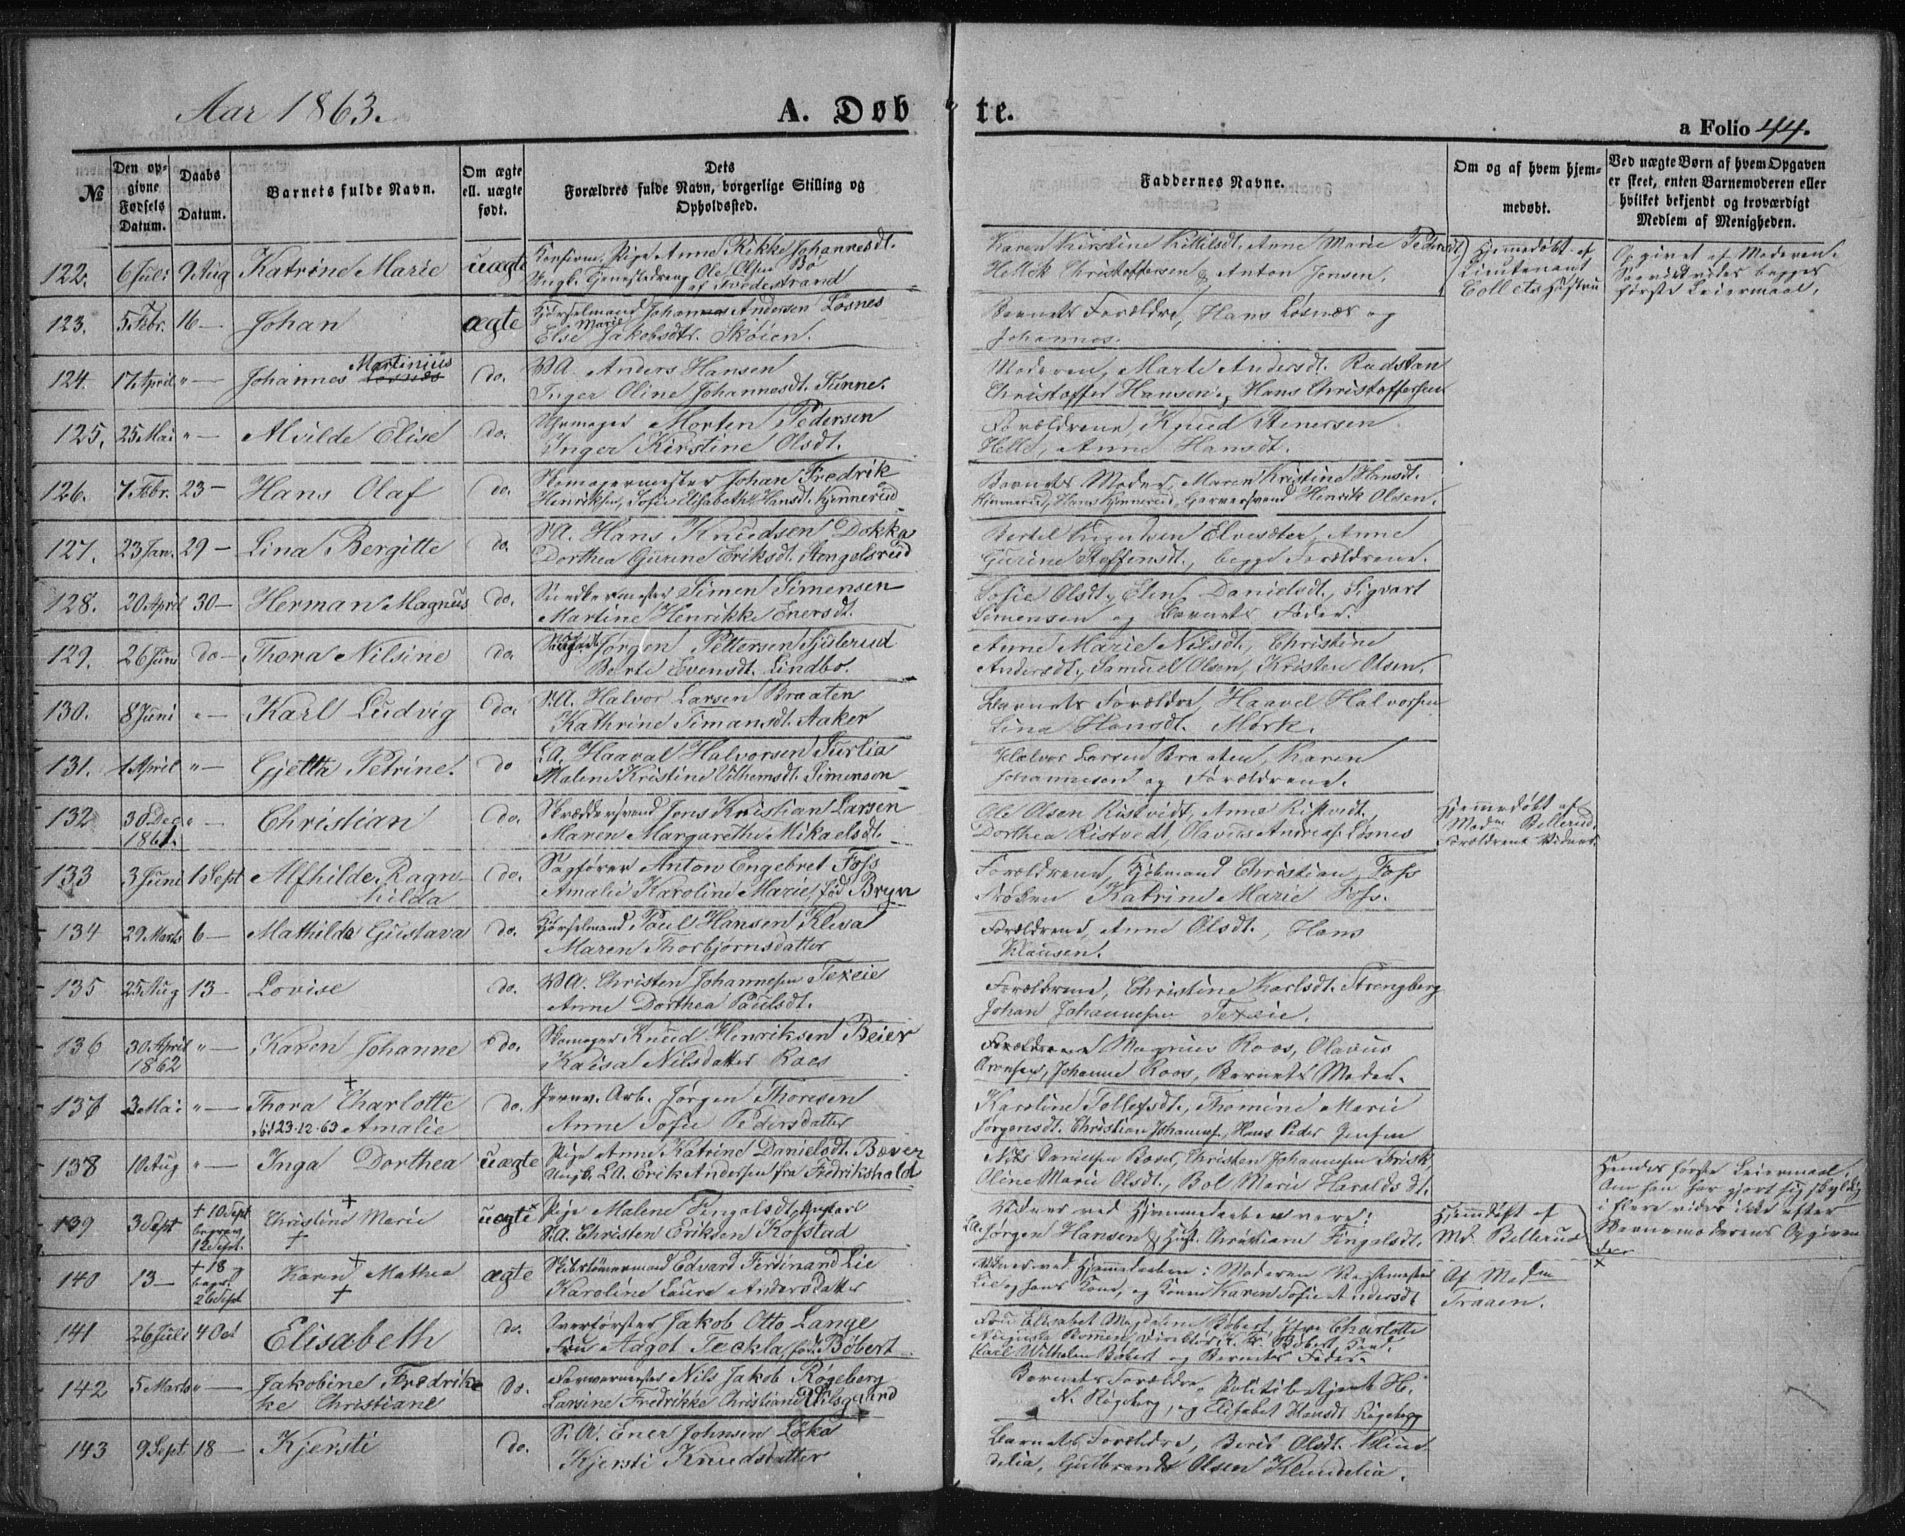 Aar 1863.
A. Døbte.
a Folio 44.
№
Den opgivne Fødsels Datum.
Daabs Datum.
Barnets fulde Navn.
Om ægte ell. uægte født.
Dets Forældres fulde Navn, borgerlige Stilling og Opholdssted.
Faddernes Navne.
Om og af hvem hjemmedøbt.
Ved uægte Børn af hvem Opgaven er skeet, enten Barnemoderen eller hvilket bekjendt og troværdigt Medlem af Menigheden.
122. 6 Juli 9 Aug Katrine Marie uægte Pige Anne Rikke Johannesdt.
Ungk. Ole Olsen Bø
af Tvedestrand
Karen Kirstine Killilsdt. Anne Marie Pedersdt
Christoffersen & Anton Jensen.
Hjemmedøbt af
Lieutenant
Colletts Hustru
Opgivet af Moderen.
begges
første Leiermaal.
123. 5 Febr. 16 — Johan ægte Kjørselmand Johannes Andersen Løsnes
Else Marie Jakobsdtr. Skøien.
Barnets Forældre, Hans Løsnæs og
Johannes.
124. 17 April " — Johannes Martinius do. Anders Hansen
Inger Oline Johannesdt. Tunne.
Moderen, Marte Andersdt. Rudstan
Christoffer Hansen, Hans Christoffersen
125. 25 Mai " — Alvilde Elise do. Morten Pedersen
Inger Kirstine Olsdt.
Forældrene, Knud Stenersen
Helle, Anne Hansdt.
126. 7 Febr. 23 — Hans Olaf do. Skomagermester Johan Fredrik
Henriksen, Sofie Elisabeth Hansdt. Kjennerud
Barnets Moder, Maren Kristine Hansdt.
Kjinnerud, Hans Kjinnerud, Garversvend Henrik Olsen.
127. 23 Jan. 29 — Lina Bergitte do. Hans Knudsen Dokka
Dorthea Gurine Eriksdt. Stengelsrud
Bertel Knudsen Elvesæter, Anne
Gurine Steffensdt., begge Forældrene.
128. 20 April 30 — Herman Magnus do. Snedkermester Simen Simensen
Martine Henrikke Enersdt.
Sofie Olsdt., Elen Danielsdt., Sigvart
Simensen og Barnets Fader.
129. 26 Juni do — Thora Nilsine do. Jørgen Pettersen Gislerud
Berte Evensdt. Lindbo.
Anne Marie Nilsdt., Christine
Andersdt., Samuel Olsen, Kristen Olsen.
130. 8 Juni " — Karl Ludvig do. Halvor Larsen Braaten
Kathrine Simansdt. Aaker
Barnets Forældre, Haavel Halvorsen
Lina Hansdt. Mørk.
131. 1 April " — Gjetta Petrine. do Haaval Halvorsen Turlia
Malene Kristine Simensen
Halvor Larsen Braaten, Karen
Johannesen og Forældrene.
132 30 Dec 1861. " Christian do. Skræddersvend Jens Kristian Larsen
Maren Margarethe Mikaelsdt.
Ole Olsen Ristvidt, Anne Ristvedt,
Dorthea Ristvedt, Olavus Andreas. Løsnes
Hjemmedøbt af
Madm Bellerud.
Forældrene Vidner.
133 3 Juni 1 Sept Alfhilde Ragnhilda do. Sagfører Anton Engebret Foss
Amalie Karoline Marie, fød Bryn
Forældrene, Kjøbmand Christian Foss
Frøken Katrine Marie Foss.
134 29 Marts 6 — Mathilde Gustava do. Kjørselmand Poul Hansen Kleva
Maren Thorbjørnsdatter
Forældrene, Anne Olsdt., Hans
Klausen.
135 25 Aug 13 — Lovise do. Christen Johannesen Texeie
Anne Dorthea Paulsdt.
Forældrene, Christine Karlsdt. Strengberg
Johan Johannesen Texeie.
136 30 April 1862 " — Karen Johanne do. Skomager Knud Henriksen Beier
Kaisa Nilsdatter Roos
Forældrene, Magnus Roos, Olavus
Arnesen, Johanne Roos, Barnets Moder.
137 3 Mai " — Thora Charlotte
Død 23-12-63 Amalie do. Jernv. Arb. Jørgen Thoresen
Anne Sofie Pedersdatter
Karoline Tollefsdt., Thomine Marie
Jørgensdt. Christian Johannes., Hans Peder Jensen
138 10 Aug " — Inga Dorthea uægte Pige Anne Katrine Danielsdt. Bæver
Ungk. Erik Andersen fra Fredrikshald
Nils Danielsen Christen Johannesen Frisk
Oline Marie Olsdt., Bol Marie Haralds dt.
Hendes første Leiermaal
Om han har gjort sig skyldig
i flere vides ikke efter
Barnemoderens Opgivende
139 3 Sept † 10 Sept
begravn. 12 Sept. Christine Marie uægte Pige Malene Fingalsdt,
Christen Eriksen Kofstad
Vidner ved Hjemmedaaben vare:
Jørgen Hansen & Hust. Christiane Fingelsdt.
Hjemdøbt af
Md. Bellerud
140 13 — † 18 begr. 26 Sept Karen Mathea ægte Edvard Ferdinand Lie
Karoline Laura Andersdatter
Vidner ved Hjemmedaaben: Moderen
Lie og hans Kone, og Konen Karen Sofie Andersdt
Af Madm
Traaen.
141 26 Juli 4 Oct Elisabeth do. Overførster Jakob Otto Lange
Fru Aagot Teckla født Bøbert
Fru Elisabet Magdalene Bøbert, Charlotte
Auguste Direktør K. Fr. Bøbert, Kand.
Carl Wilhelm Bøbert og Barnets Fader.
142 5 Marts " — Jakobine Fredrikke Christiane do. Farvermester Nils Jakob Røgeberg
Larsine Fredrikke Christiane
Barnets Forældre, Politibetjent H.
N. Røgeberg, og Elisabet Hansdt Røgeberg
143 9 Sept 18 — Kjersti do. Ener Johnsen Løka
Kjersti Knudsdatter
Barnets Forældre, Berit Olsdt. Klundelia, Gulbrand Olsen Klundelia.